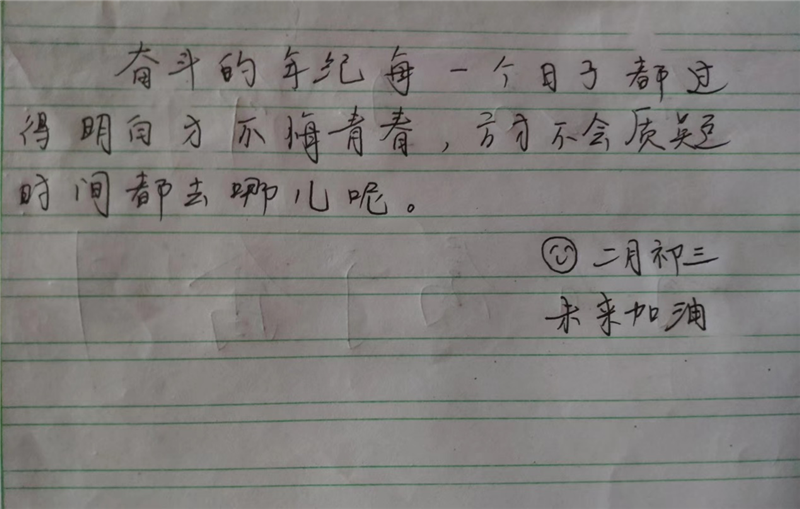 奋斗的年纪每一个日子都过
得明白才不悔青春，方才不会质疑
时间都去哪儿呢。
二月初三
未来加油